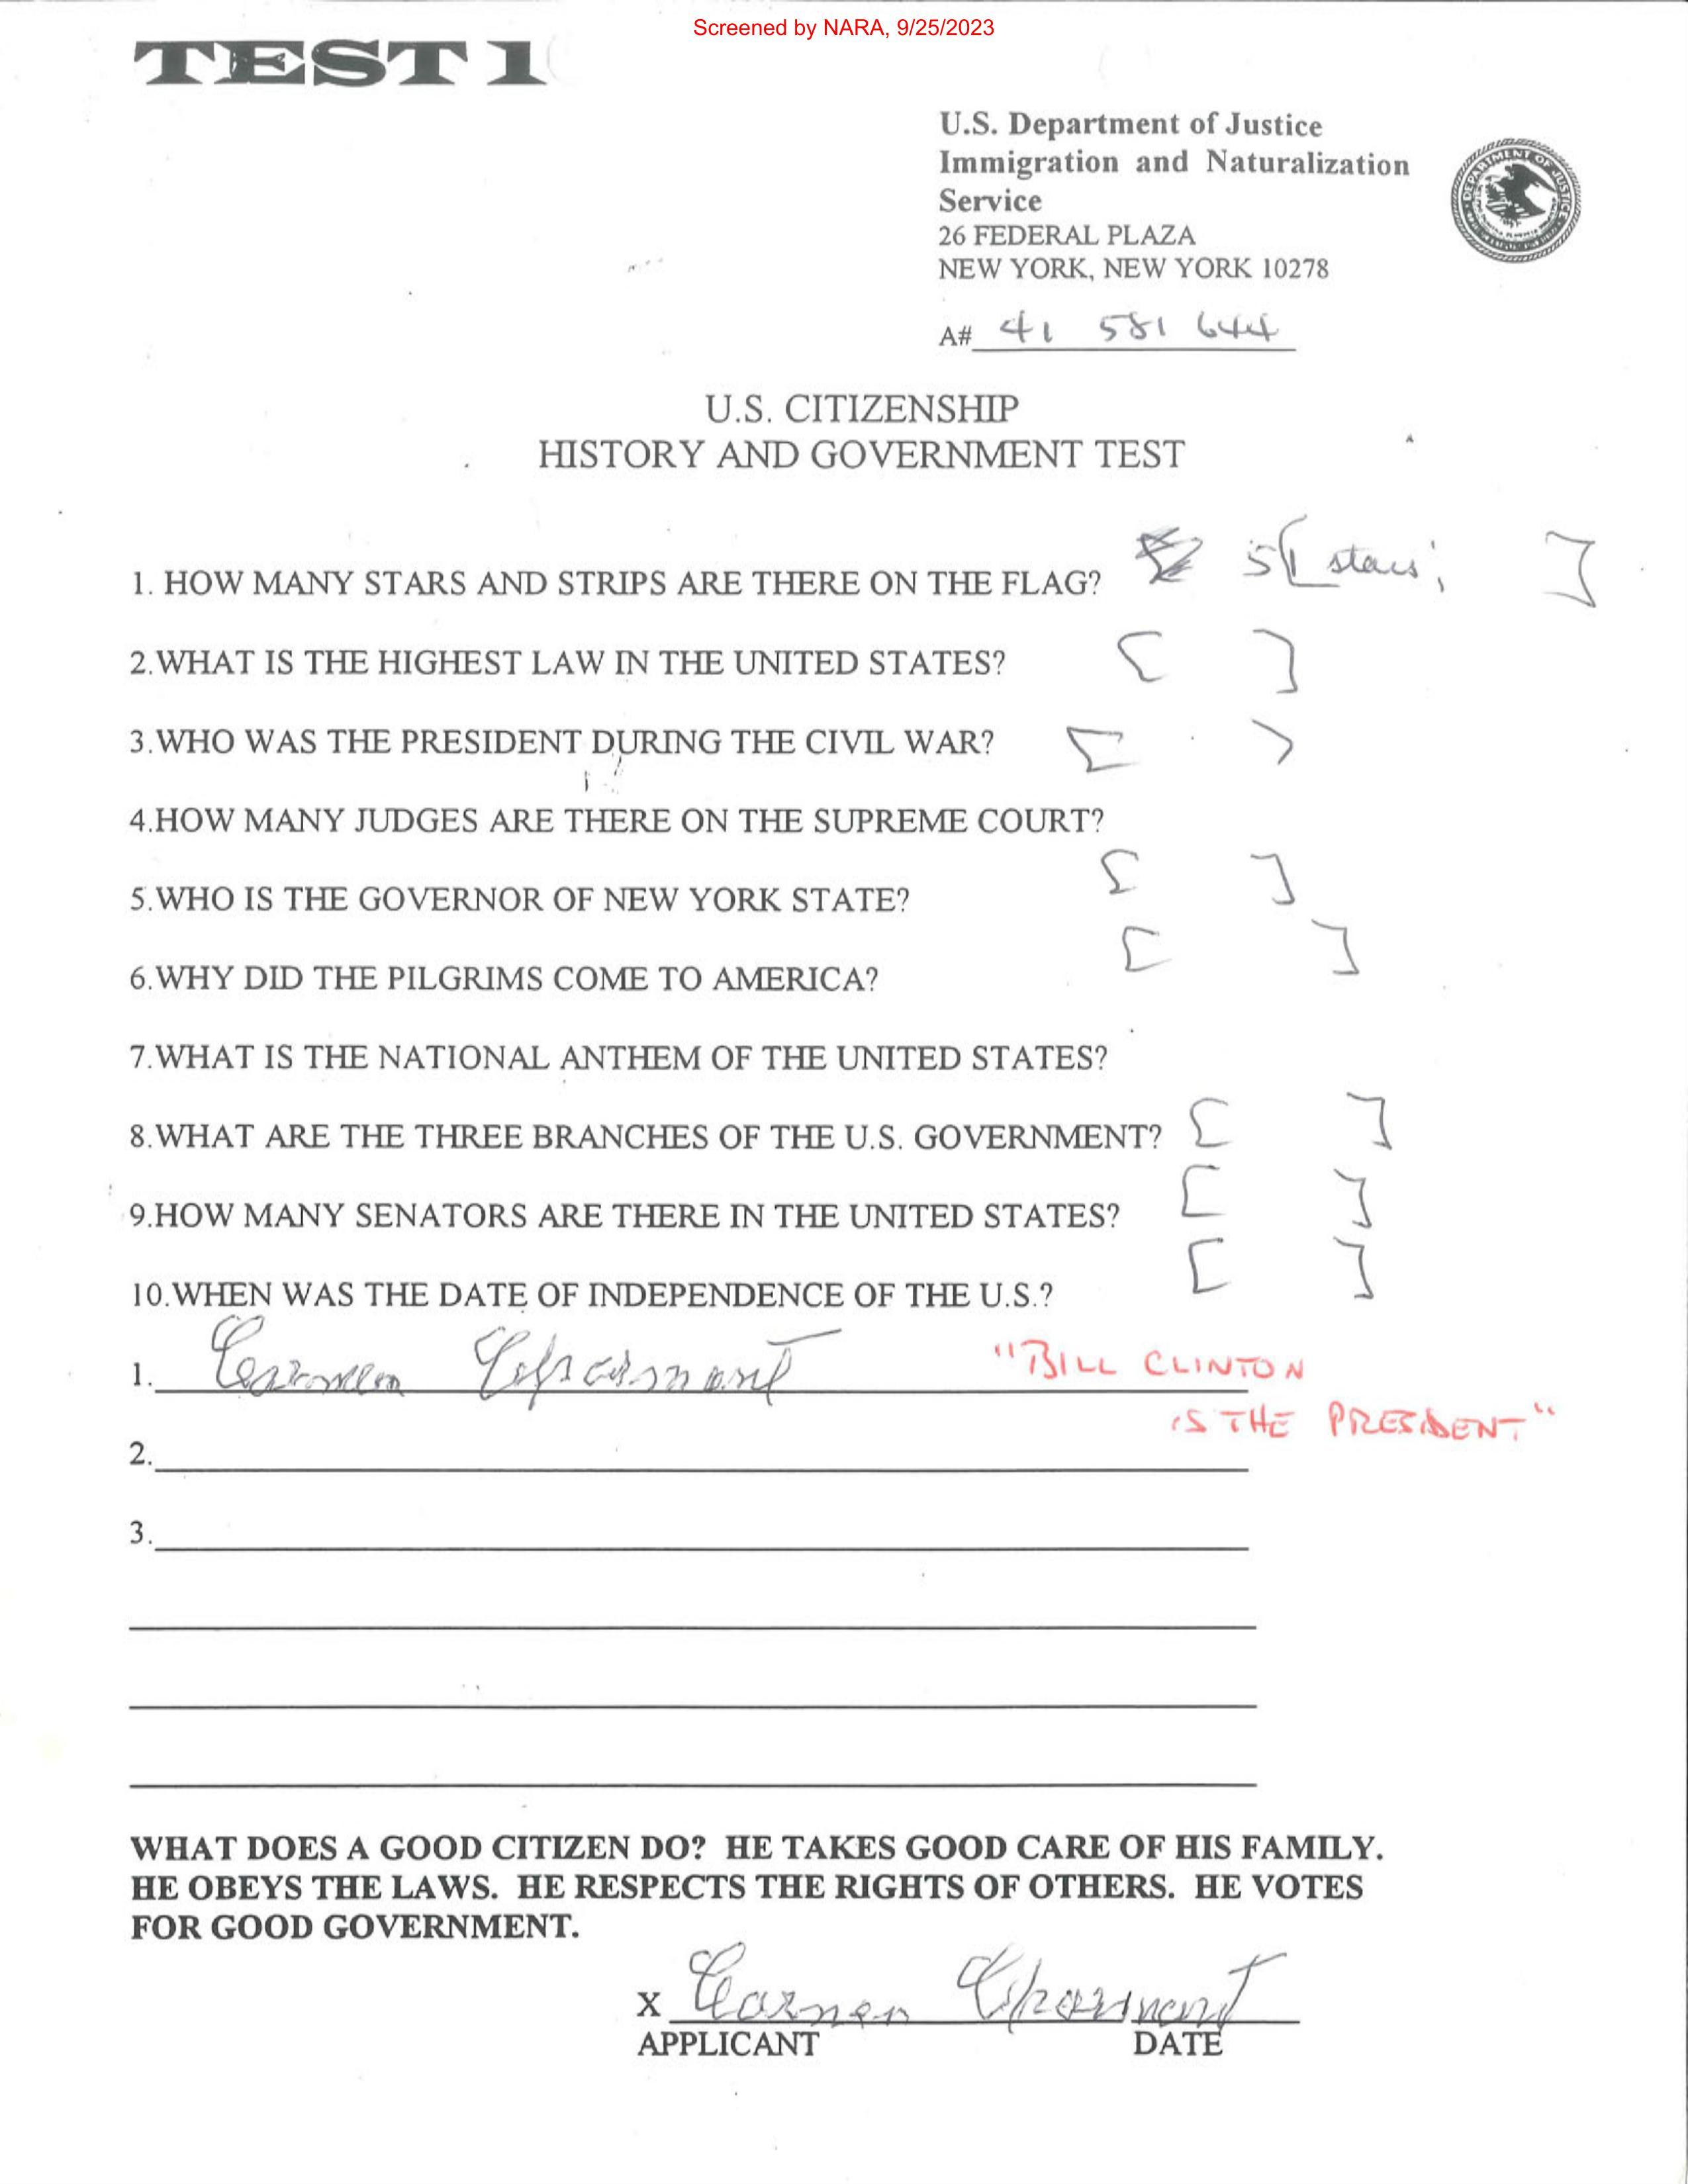 Screened by NARA, 9/25/2023
TEST 1
U.S. Department of Justice
Immigration and Naturalization
Service
26 FEDERAL PLAZA
NEW YORK, NEW YORK 10278
A# 41 581 644
U.S. CITIZENSHIP
HISTORY AND GOVERNMENT TEST
1. HOW MANY STARS AND STRIPS ARE THERE ON THE FLAG? 51 [stars; ]
2.WHAT IS THE HIGHEST LAW IN THE UNITED STATES? [ ]
3.WHO WAS THE PRESIDENT DURING THE CIVIL WAR? [ ]
4.HOW MANY JUDGES ARE THERE ON THE SUPREME COURT?
[ ]
5.WHO IS THE GOVERNOR OF NEW YORK STATE?
[ ]
6.WHY DID THE PILGRIMS COME TO AMERICA?
7.WHAT IS THE NATIONAL ANTHEM OF THE UNITED STATES?
8.WHAT ARE THE THREE BRANCHES OF THE U.S. GOVERNMENT? [ ]
9.HOW MANY SENATORS ARE THERE IN THE UNITED STATES? [ ]
10.WHEN WAS THE DATE OF INDEPENDENCE OF THE U.S.? [ ]
1. Carmen "BILL CLINTON
IS THE PRESIDENT"
2.
3.
WHAT DOES A GOOD CITIZEN DO? HE TAKES GOOD CARE OF HIS FAMILY.
HE OBEYS THE LAWS. HE RESPECTS THE RIGHTS OF OTHERS. HE VOTES
FOR GOOD GOVERNMENT.
X Carmen
APPLICANT DATE